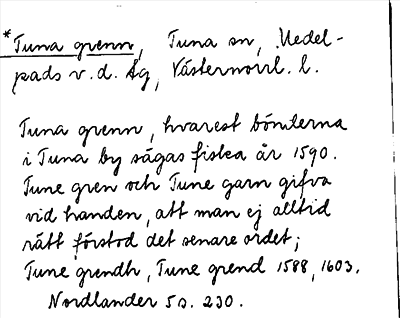 *Tuna grenn, Tuna sn, Medel-
pads v. d. tg, Västernorrl. l.
Tuna grenn, hvarest bönderna
i Tuna by sägas fiska år 1590.
Tune gren och Tune garn gifva
vid handen, att man ej alltid
rätt förstod det senare ordet;
Tune grendh, Tune grend 1588, 1603.
Nordlander 5 s. 230.